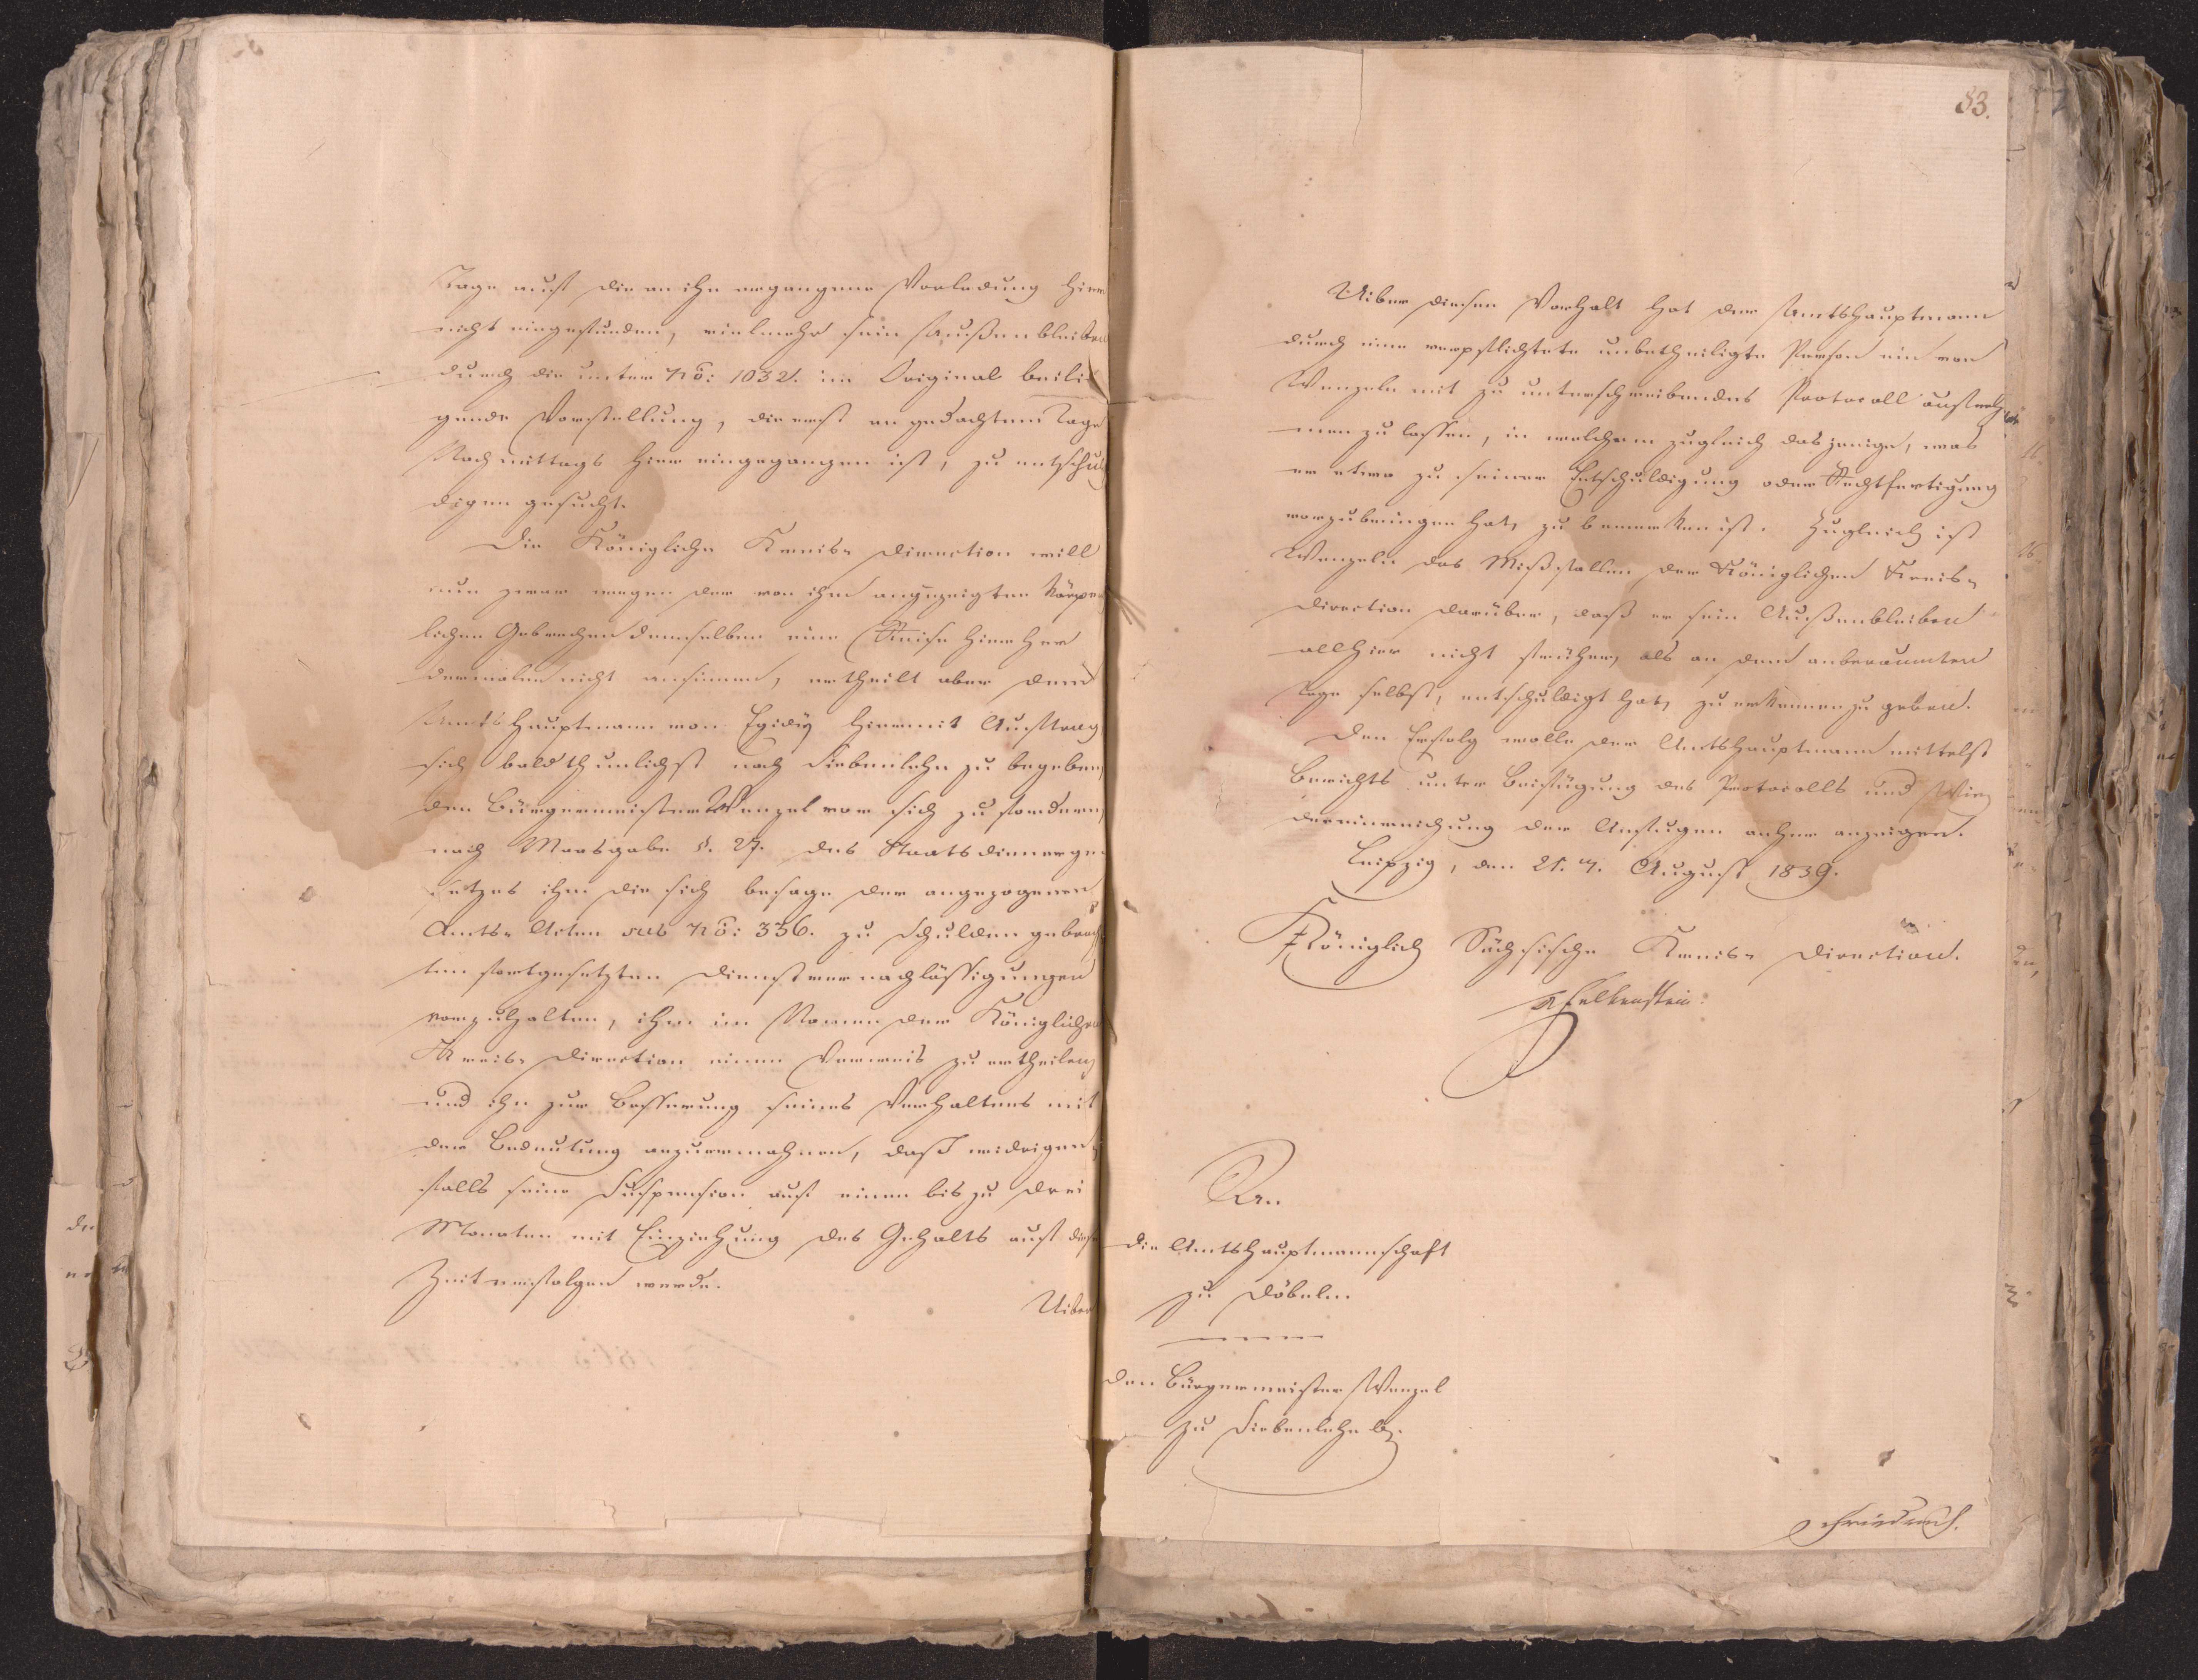 Tage auf die an ihn ergangene Vorladung hier
nicht eingefunden, vielmehr sein Außenbleiben
durch die unter No: 1032. im Original beilie
gende Vorstellung, die erst an gedachtem Tage
Nachmittags hier eingegangen ist, zu entschul
digen gesucht.
Die Königliche Kreis- Direction will
nun zwar wegen der von ihm angezeigten körper
lichen Gebrechen demselben eine Reise hierher
dermalen nicht ansinnen, ertheilt aber dem
Amtshauptmann von Egidy hiermit Auftrag
sich baldthunlichst nach Siebenlehn zu begeben,
den Bürgermeister Wenzel vor sich zu fordern,
nach Maasgabe §. 27. des Staatsdienerge-
setzes ihm die sich besage der angezogenen
Amts- Acten sub No: 336. zu Schulden gebrach
ten fortgesetzten Dienstvernachlässigungen
vorzuhalten, ihm im Namen der Königlichen
Kreis- Direction einen Verweis zu ertheilen,
und ihn zur Besserung seines Verhaltens mit
der Bedeutung anzuermahnen, daß widrigen-
falls seine Suspension auf einen bis zu drei
Monaten mit Einziehung des Gehalts auf diese
Zeit erfolgen werde.
Uiber
83.
Uiber diesen Vorhalt hat der Amtshauptmann
durch eine verpflichtete unbetheiligte Person ein von
Wenzeln mit zu unterschreibendes Protocoll aufneh
men zu lassen, in welchem zugleich dasjenige, was
er etwa zu seiner Entschuldigung oder Rechtfertigung
vorzubringen hat, zu bemerken ist. Zugleich ist
Wenzeln das Mißfallen der Königlichen Kreis-
direction darüber, daß er sein Außenbleiben
allhier nicht früher, als an dem anberaumten
Tage selbst, entschuldigt hat, zu erkennen zu geben.
Den Erfolg wolle der Amtshauptmann mittelst
Berichts unter Beifügung des Protocolls und Wie
dereinreichung der Anfugen anher anzeigen.
Leipzig, den 21. August 1839.
Königlich Sächsische Kreis- Direction.
v Falkenstein.
An
die Amtshauptmannschaft
zu Döbeln.
den Bürgermeister Wenzel
zu Siebenlehn
Friedrich.